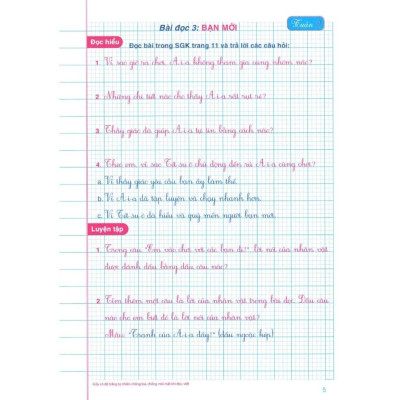 Bài đọc 3: BẠN MỚI
Tuần
Đọc hiểu
Đọc bài trong SGK trang 11 và trả lời các câu hỏi:
1. Vì sao giờ ra chơi, A-i-a không tham gia cùng nhóm nào?
2. Những chi tiết nào cho thấy A-i-a rất rụt rè?
3. Thầy giáo đã giúp A-i-a tự tin bằng cách nào?
4. Theo em, vì sao Tét-su-c chủ động đến rủ A-i-a cùng chơi?
a. Vì thầy giáo yêu cầu bạn ấy làm thế.
b. Vì A-i-a đã tập luyện và chạy nhanh hơn.
c. Vì Tét-su-c đã hiểu và quý mến người bạn mới.
Luyện tập
1. Trong câu "Em vào chơi với các bạn đi!", lời nói của nhân vật
được đánh dấu bằng dấu câu nào?
2. Tìm thêm một câu là lời của nhân vật trong bài đọc. Dấu câu
nào cho em biết đó là lời nói của nhân vật?
Mẫu: "Tranh của A-i-a đấy!" (dấu ngoặc kép)
5